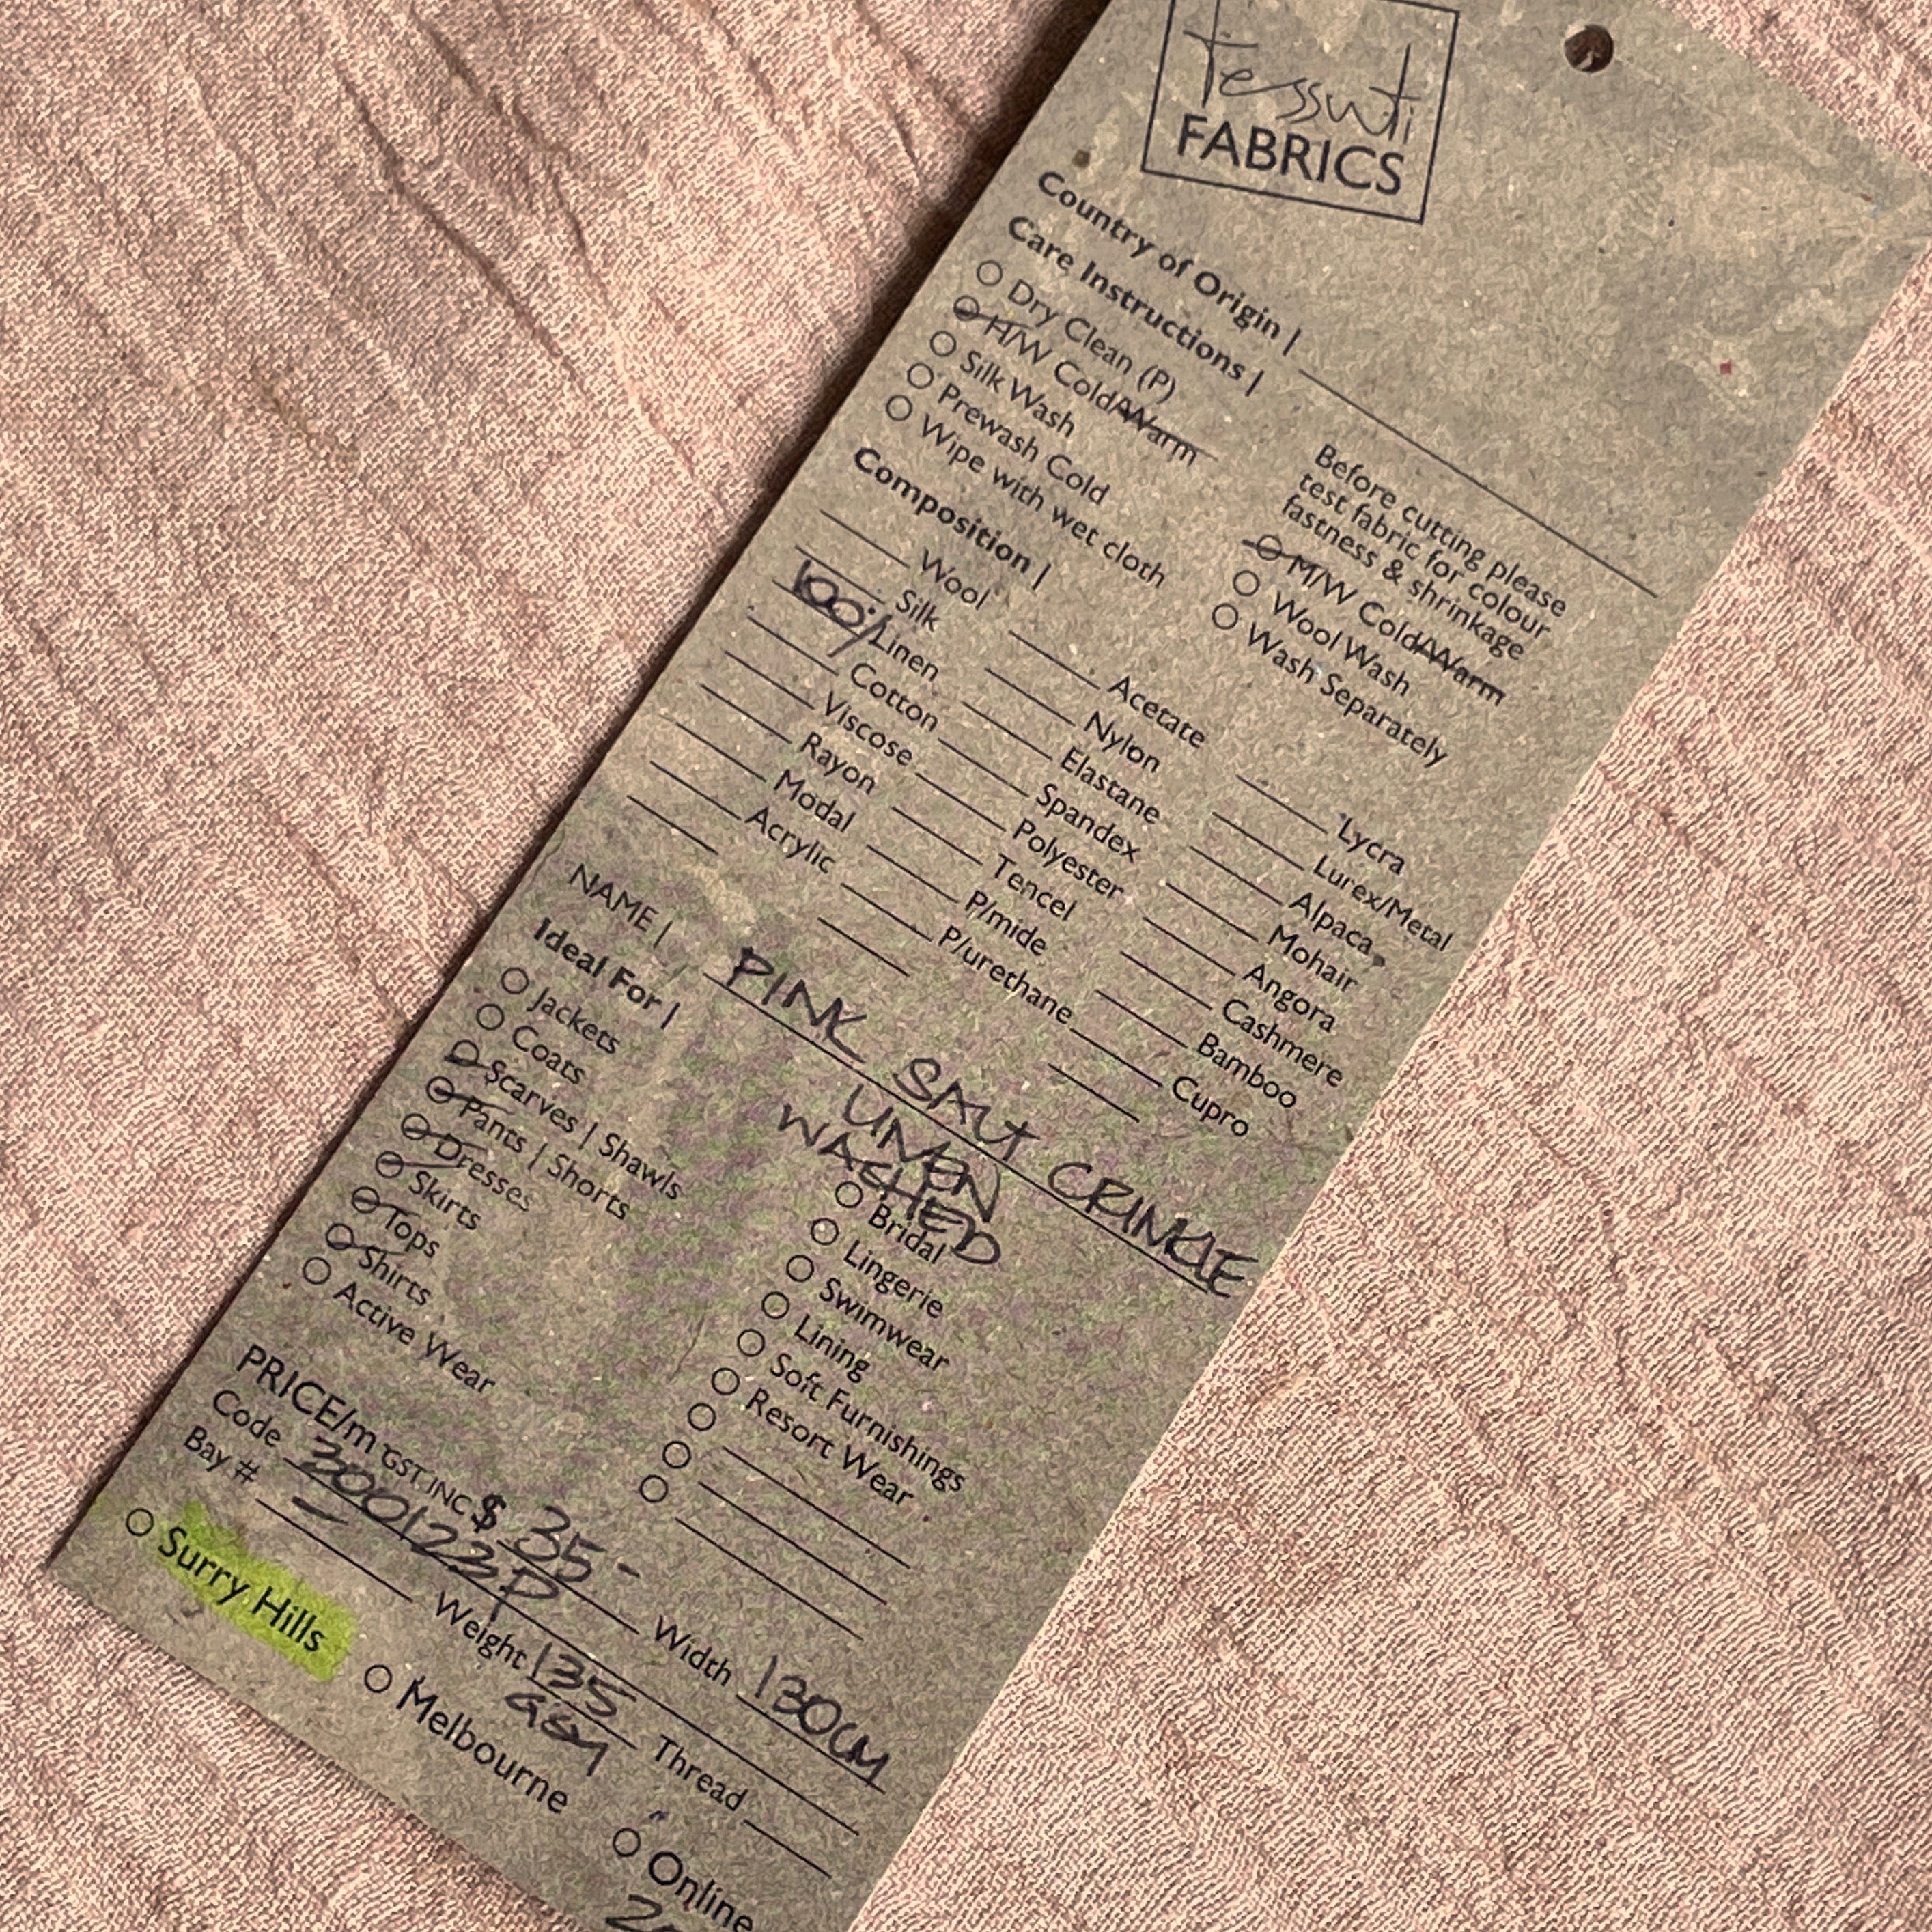 tessuti
FABRICS
Country of Origin |
Care Instructions |
Dry Clean (P)
H/W Cold/Warm
Silk Wash
Prewash Cold
Wipe with wet cloth
Before cutting please
test fabric for colour
fastness & shrinkage
M/W Cold/Warm
Wool Wash
Wash Separately
Composition |
Wool
Silk
100% Linen
Cotton
Viscose
Rayon
Modal
Acrylic
Acetate
Nylon
Elastane
Spandex
Polyester
Tencel
P/mide
P/urethane
Lycra
Lurex/Metal
Alpaca
Mohair
Angora
Cashmere
Bamboo
Cupro
NAME | PINK SALT CRINKLE
WASHED
Ideal For |
Jackets
Coats
Scarves | Shawls
Pants | Shorts
Dresses
Skirts
Tops
Shirts
Active Wear
Bridal
Lingerie
Swimwear
Lining
Soft Furnishings
Resort Wear
PRICE/m GST INC $ 35-
Code 200122P
Width 130CM
Bay # -
Weight 135
GSM
Thread
Surry Hills
Melbourne
Online